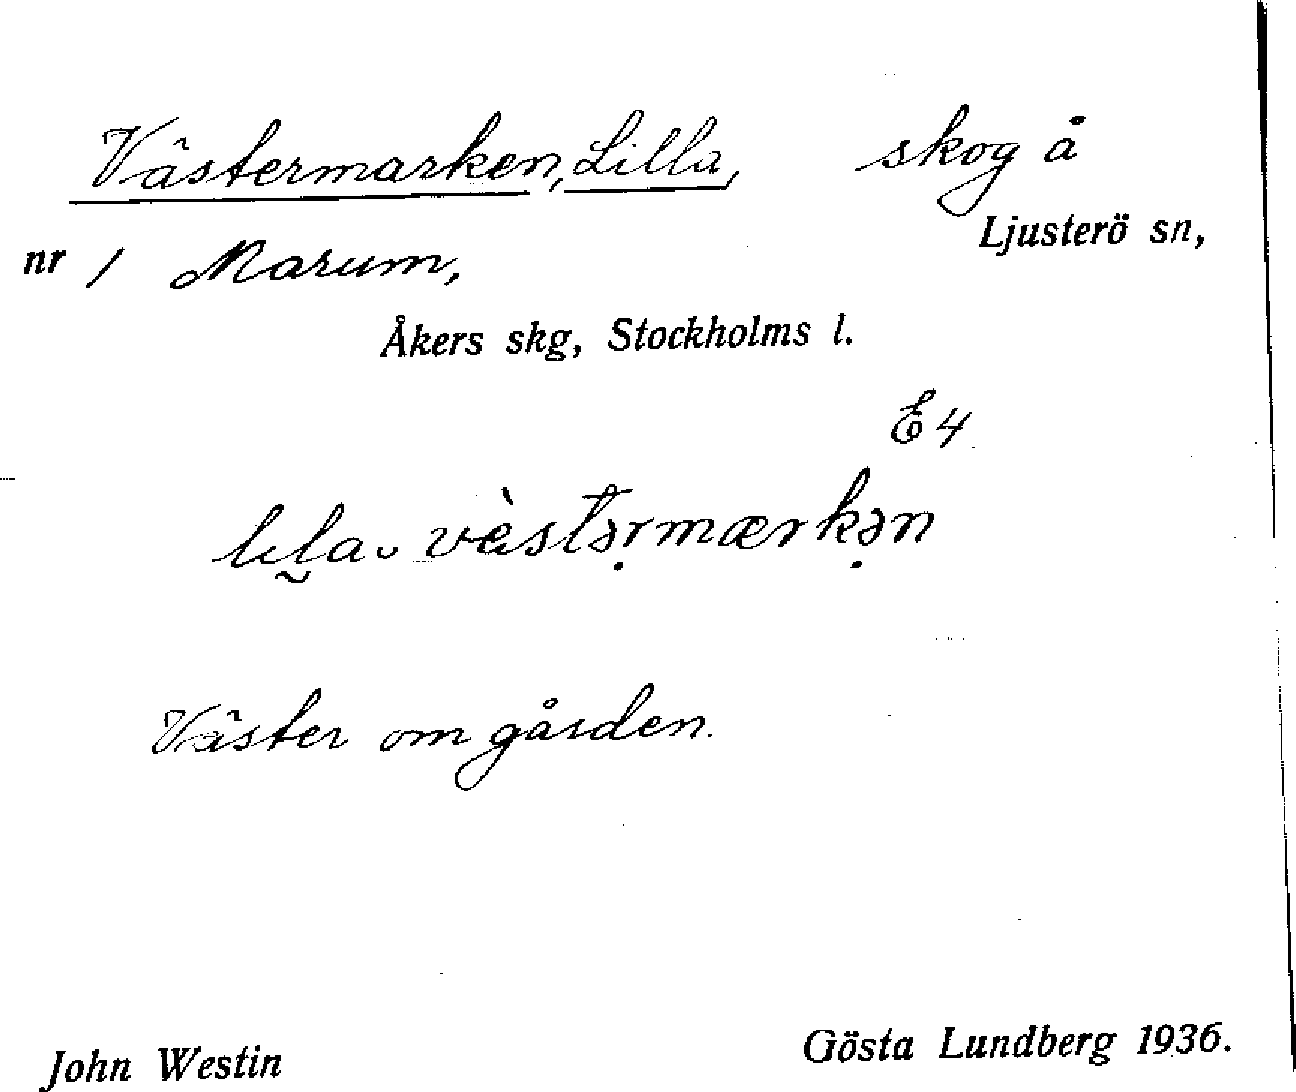 Västermarken, Lilla, skog å
Ljusterö sn,
nr 1 Marum,
Åkers skg, Stockholms l.
E4
Väster om gården.
John Westin Gösta Lundberg 1936.